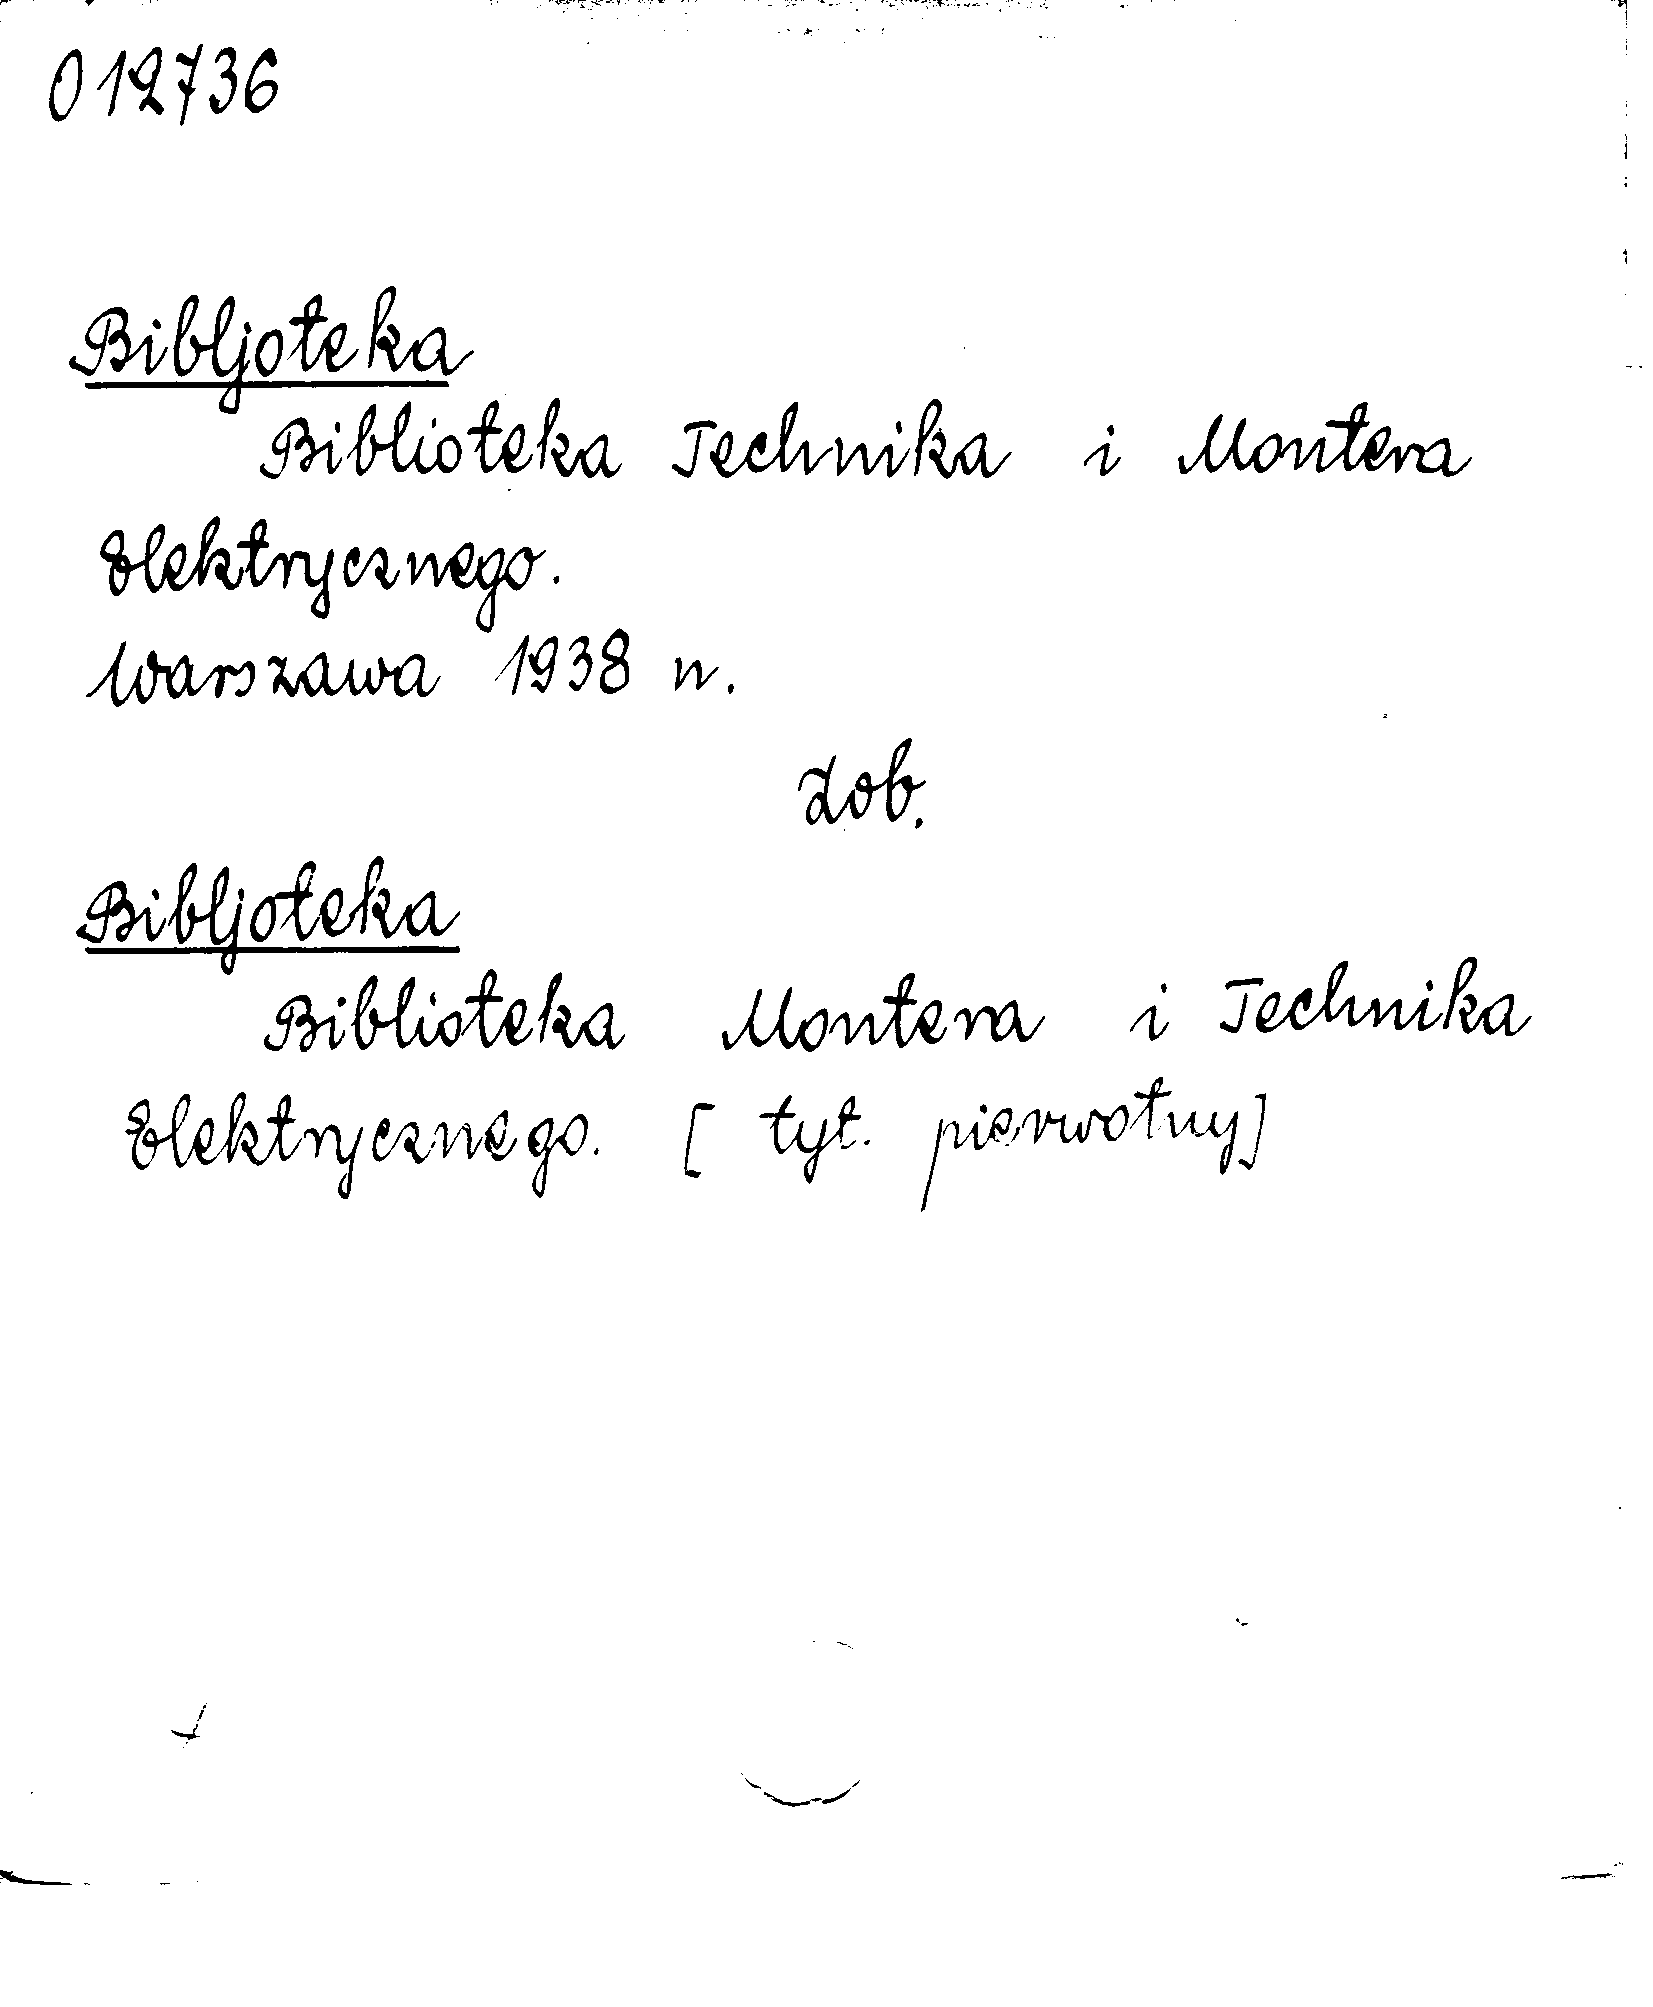 012736
Bibljoteka
Biblioteka Technika i Montera
Elektrycznego.
Warszawa 1938 n.
Zob.
Bibljoteka
Biblioteka Montera i Technika
Elektrycznego. [ tyt. pierwotny]